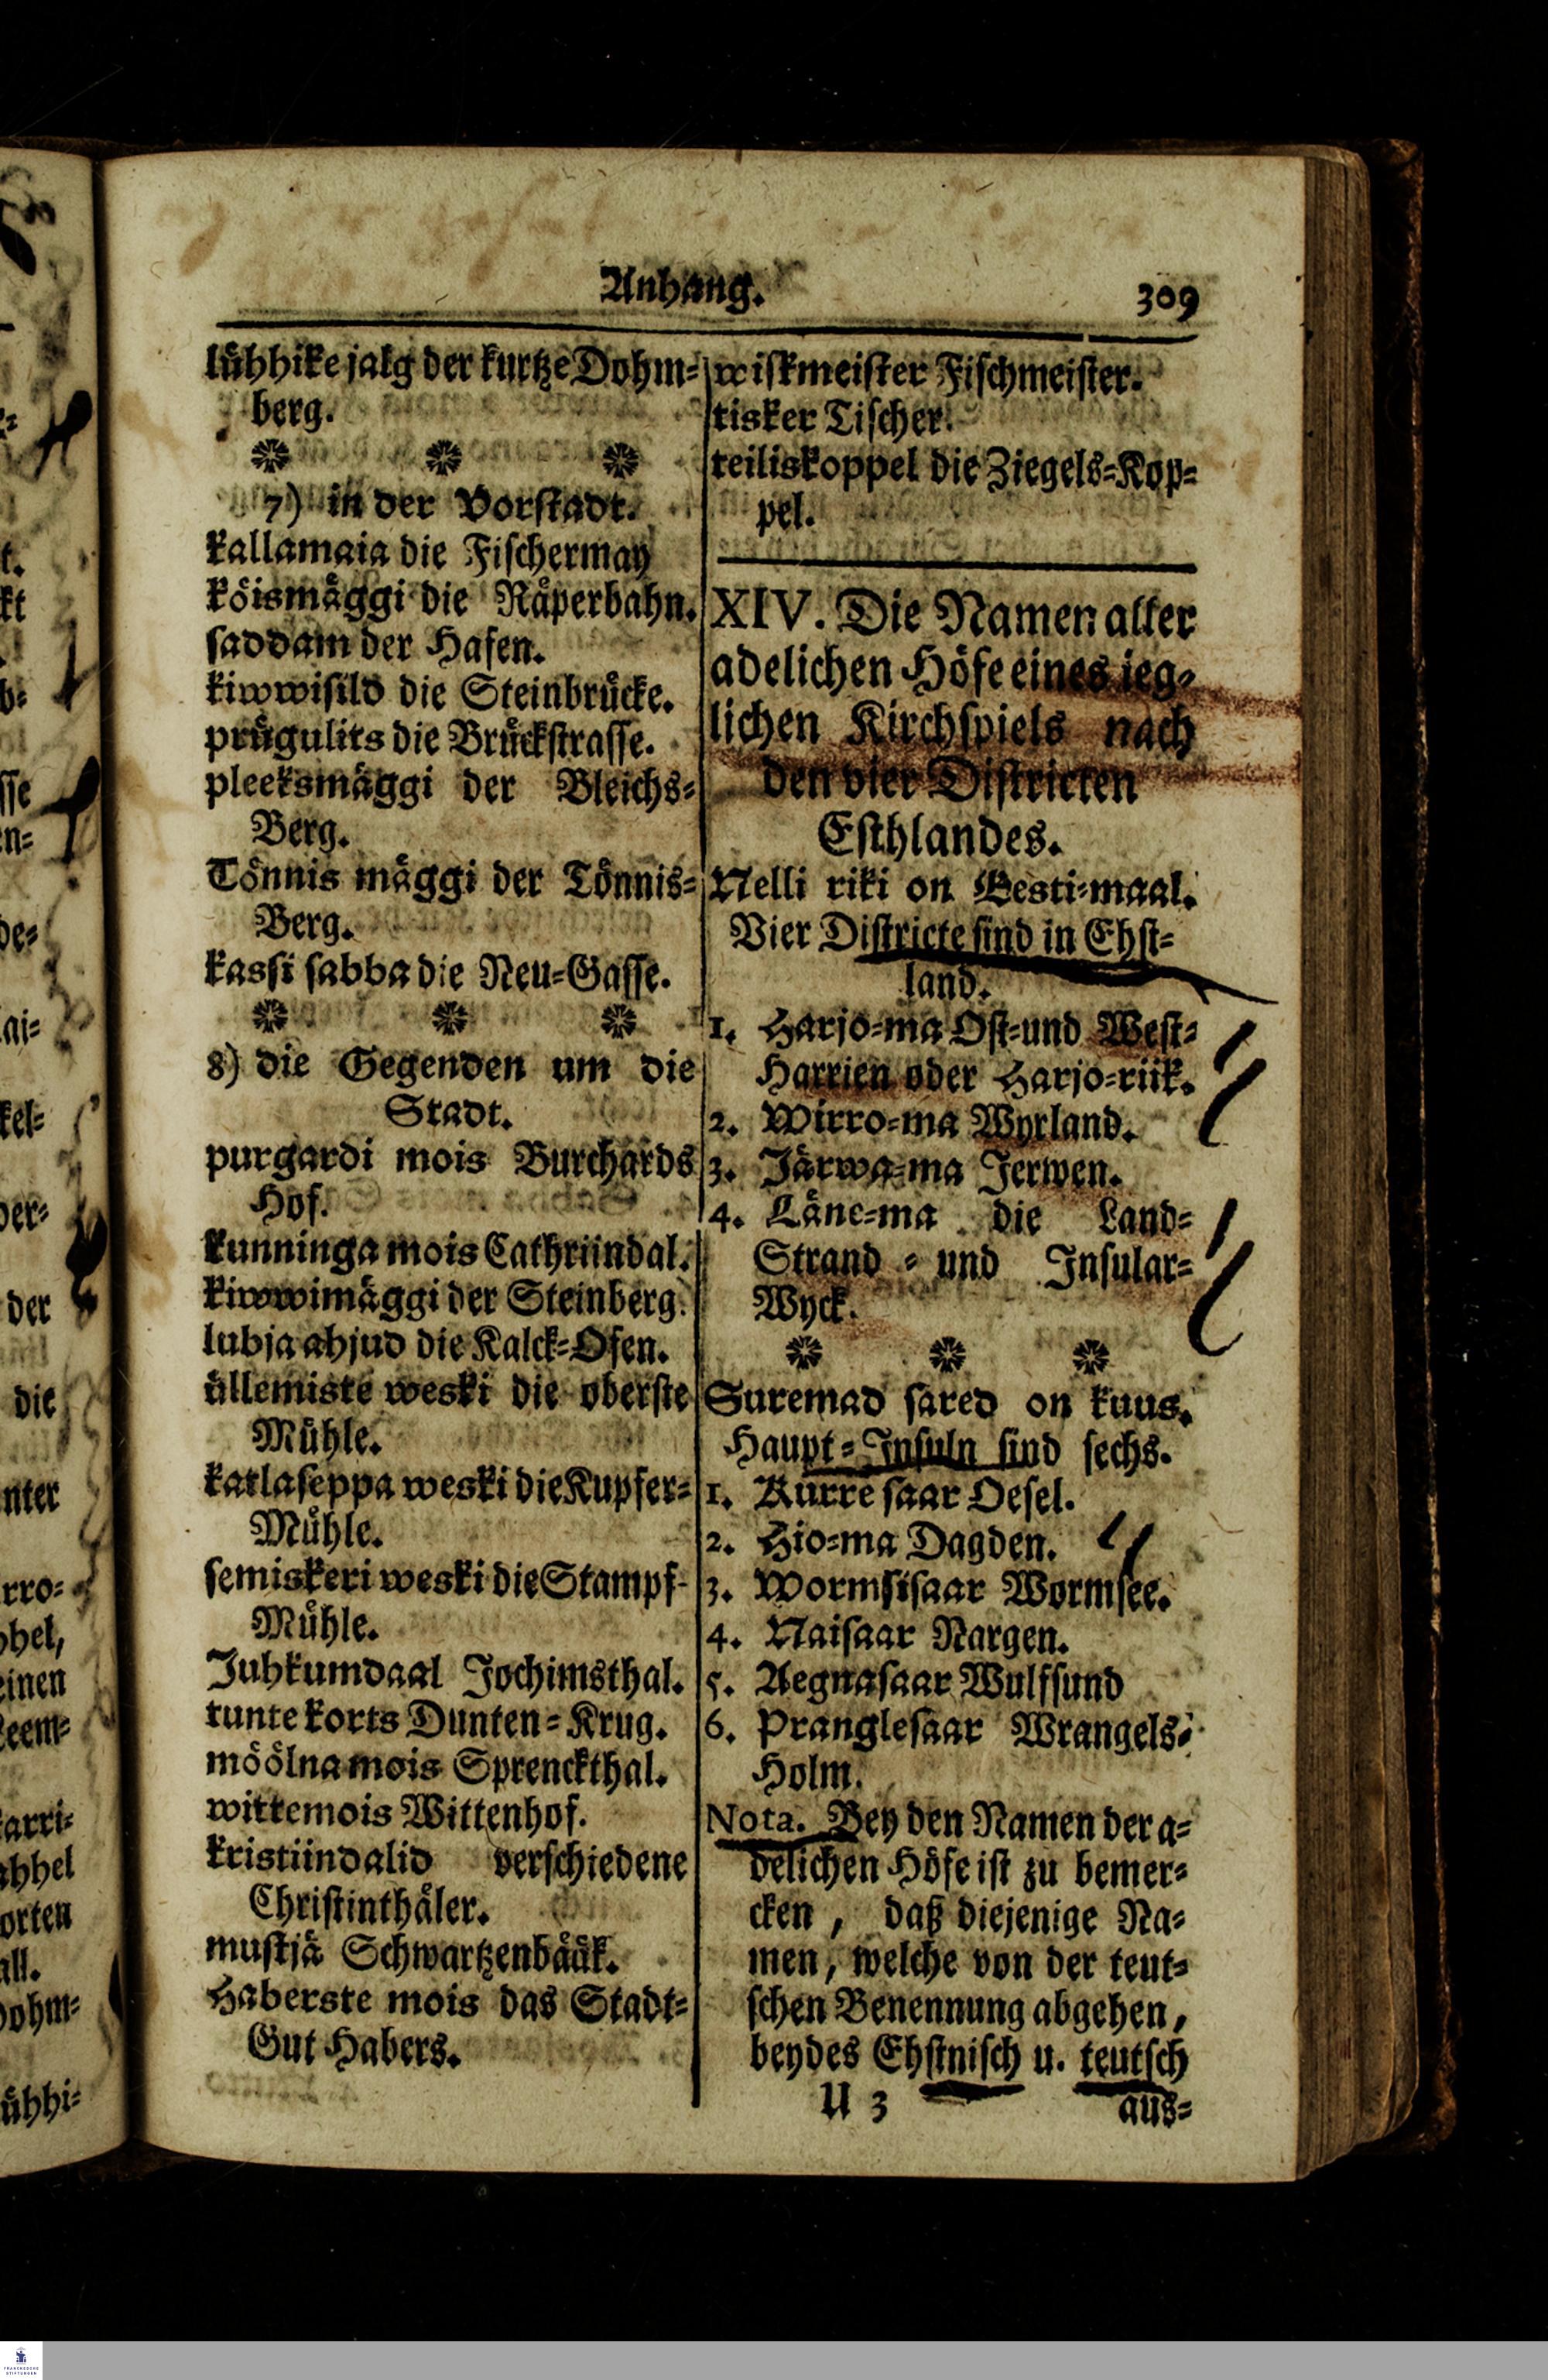 Anhang. 309
lühhike jalg der kurtze Dohm-
berg.
7) in der Vorstadt.
kallamaia die Fischermay
köismäggi die Räperbahn.
saddam der Hafen.
kiwwisild die Steinbrücke.
prügulits die Brückstrasse.
pleeksmäggi der Bleichs-
Berg.
Tönnis mäggi der Tönnis-
Berg.
kassi sabba die Neu-Gasse.
8) die Gegenden um die
Stadt.
purgardi mois Burchards
Hof.
kunninga mois Cathriindal.
kiwwimäggi der Steinberg.
lubja ahjud die Kalck-Ofen.
üllemiste weski die oberste
Mühle.
katlaseppa weski die Kupfer-
Mühle.
semiskeri weski die Stampf-
Mühle.
Juhkumdaal Jochimsthal.
tunte korts Dunten-Krug.
möölna mois Sprenckthal.
wittemois Wittenhof.
kristiindalid verschiedene
Christinthäler.
mustjä Schwartzenbääk.
Haberste mois das Stadt-
Gut Habers.
wiskmeister Fischmeister.
tisker Tischer.
teiliskoppel die Ziegels-Kop-
pel.
XIV. Die Namen aller
adelichen Höfe eines ieg-
lichen Kirchspiels nach
den vier Districten
Esthlandes.
Nelli riki on Eesti-maal.
Vier Districte sind in Ehst-
land.
1. Harjo-ma Ost-und West-
Harrien oder Harjo-riik.
2. Wirro-ma Wyrland.
3. Järwa-ma Jerwen.
4. Läne-ma die Land-
Strand - und Insular-
Wyck.
Suremad sared on kuus.
Haupt-Insuln sind sechs.
1. Kurre saar Oesel.
2. Hio-ma Dagden.
3. Wormsisaar Wormsee.
4. Naisaar Nargen.
5. Aegnasaar Wulfsund
6. Pranglesaar Wrangels-
Holm.
Nota. Bey den Namen der a-
delichen Höfe ist zu bemer-
cken, daß diejenige Na-
men, welche von der teut-
schen Benennung abgehen,
beydes Ehstnisch u. teutsch
U 3 aus-